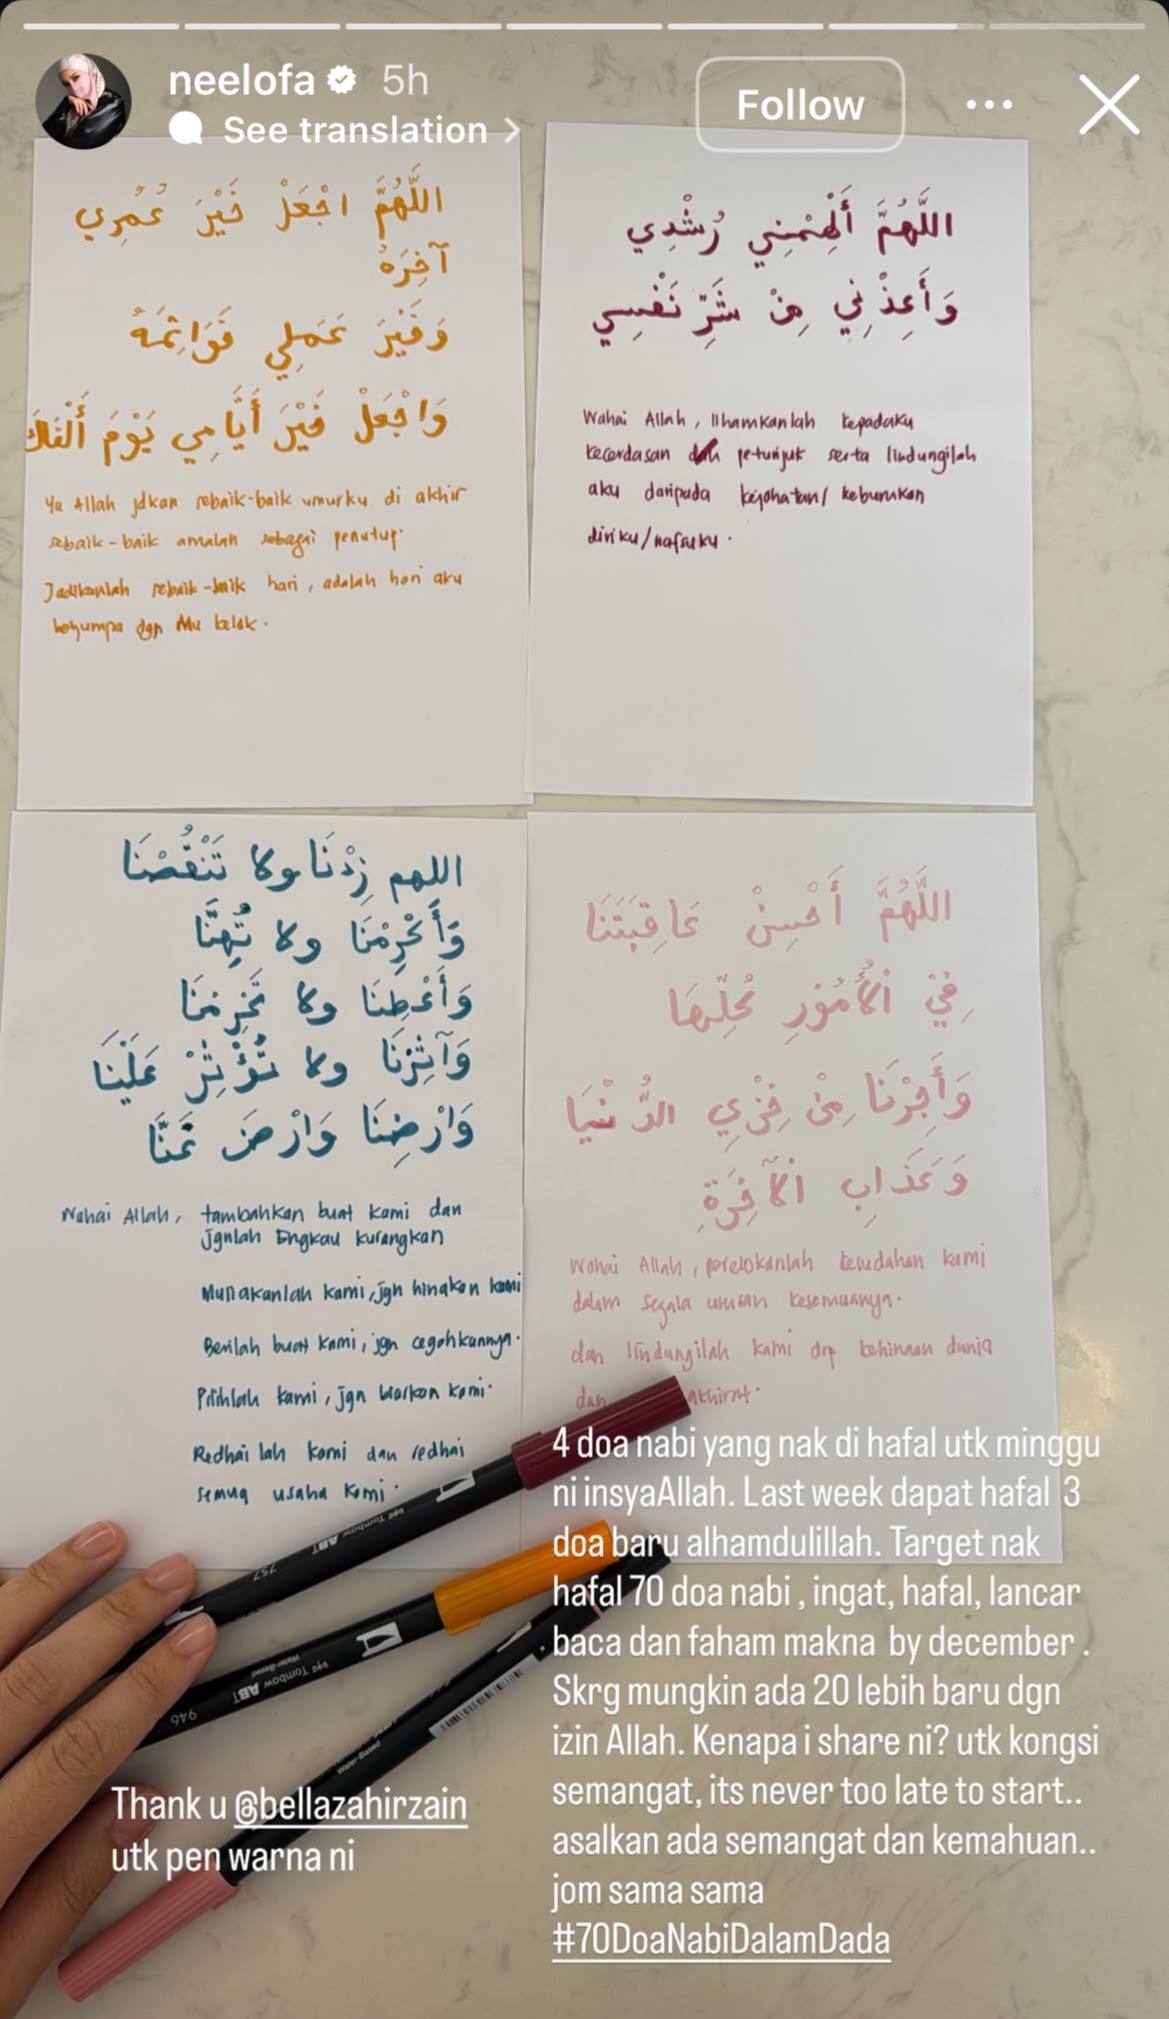 neelofa 5h
See translation
Follow
اللَّهُمَّ اجْعَلْ خَيْرَ عُمُرِي
آخِرَهُ
وَخَيْرَ عَمَلِي خَوَاتِمَهُ
وَاجْعَلْ خَيْرَ أَيَّامِي يَوْمَ أَلْقَاكَ
Ya Allah jdkan sebaik-baik umurku di akhir
sebaik-baik amalan sebagai penutup.
Jadikanlah sebaik-baik hari, adalah hari aku
berjumpa dgn Mu kelak.
اللَّهُمَّ أَلْهِمْنِي رُشْدِي
وَأَعِذْنِي مِنْ شَرِّ نَفْسِي
Wahai Allah, Ilhamkanlah kepadaku
kecerdasan dan petunjuk serta lindungilah
aku daripada kejahatan/ keburukan
diriku/nafsuku.
اللهم زِدْنَا ولا تَنْقُصْنَا
وَأَكْرِمْنَا ولا تُهِنَّا
وَأَعْطِنَا ولا تَحْرِمْنَا
وَآثِرْنَا ولا تُؤْثِرْ عَلَيْنَا
وَارْضِنَا وَارْضَ عَنَّا
Wahai Allah, tambahkan buat kami dan
jgnlah Engkau kurangkan
Muliakanlah kami, jgn hinakan kami
Berilah buat kami, jgn cegahkannya.
Pilihlah kami, jgn biarkan kami.
Redhai lah kami dan redhai
semua usaha kami.
اللَّهُمَّ أَحْسِنْ عَاقِبَتَنَا
فِيْ الْأُمُوْرِ كُلِّهَا
وَأَجِرْنَا مِنْ خِزْيِ الدُّنْيَا
وَعَذَابِ الْآخِرَةِ
Wahai Allah, perelokanlah kesudahan kami
dalam segala urusan kesemuanya.
dan lindungilah kami drp kehinaan dunia
dan akhirat.
4 doa nabi yang nak di hafal utk minggu
ni insyaAllah. Last week dapat hafal 3
doa baru alhamdulillah. Target nak
hafal 70 doa nabi , ingat, hafal, lancar
baca dan faham makna by december .
Skrg mungkin ada 20 lebih baru dgn
izin Allah. Kenapa i share ni? utk kongsi
semangat, its never too late to start..
asalkan ada semangat dan kemahuan..
jom sama sama
#70DoaNabiDalamDada
757
Tombow ABT
946
Tombow ABT
Water-Based
Water-Based
Thank u @bellazahirzain
utk pen warna ni